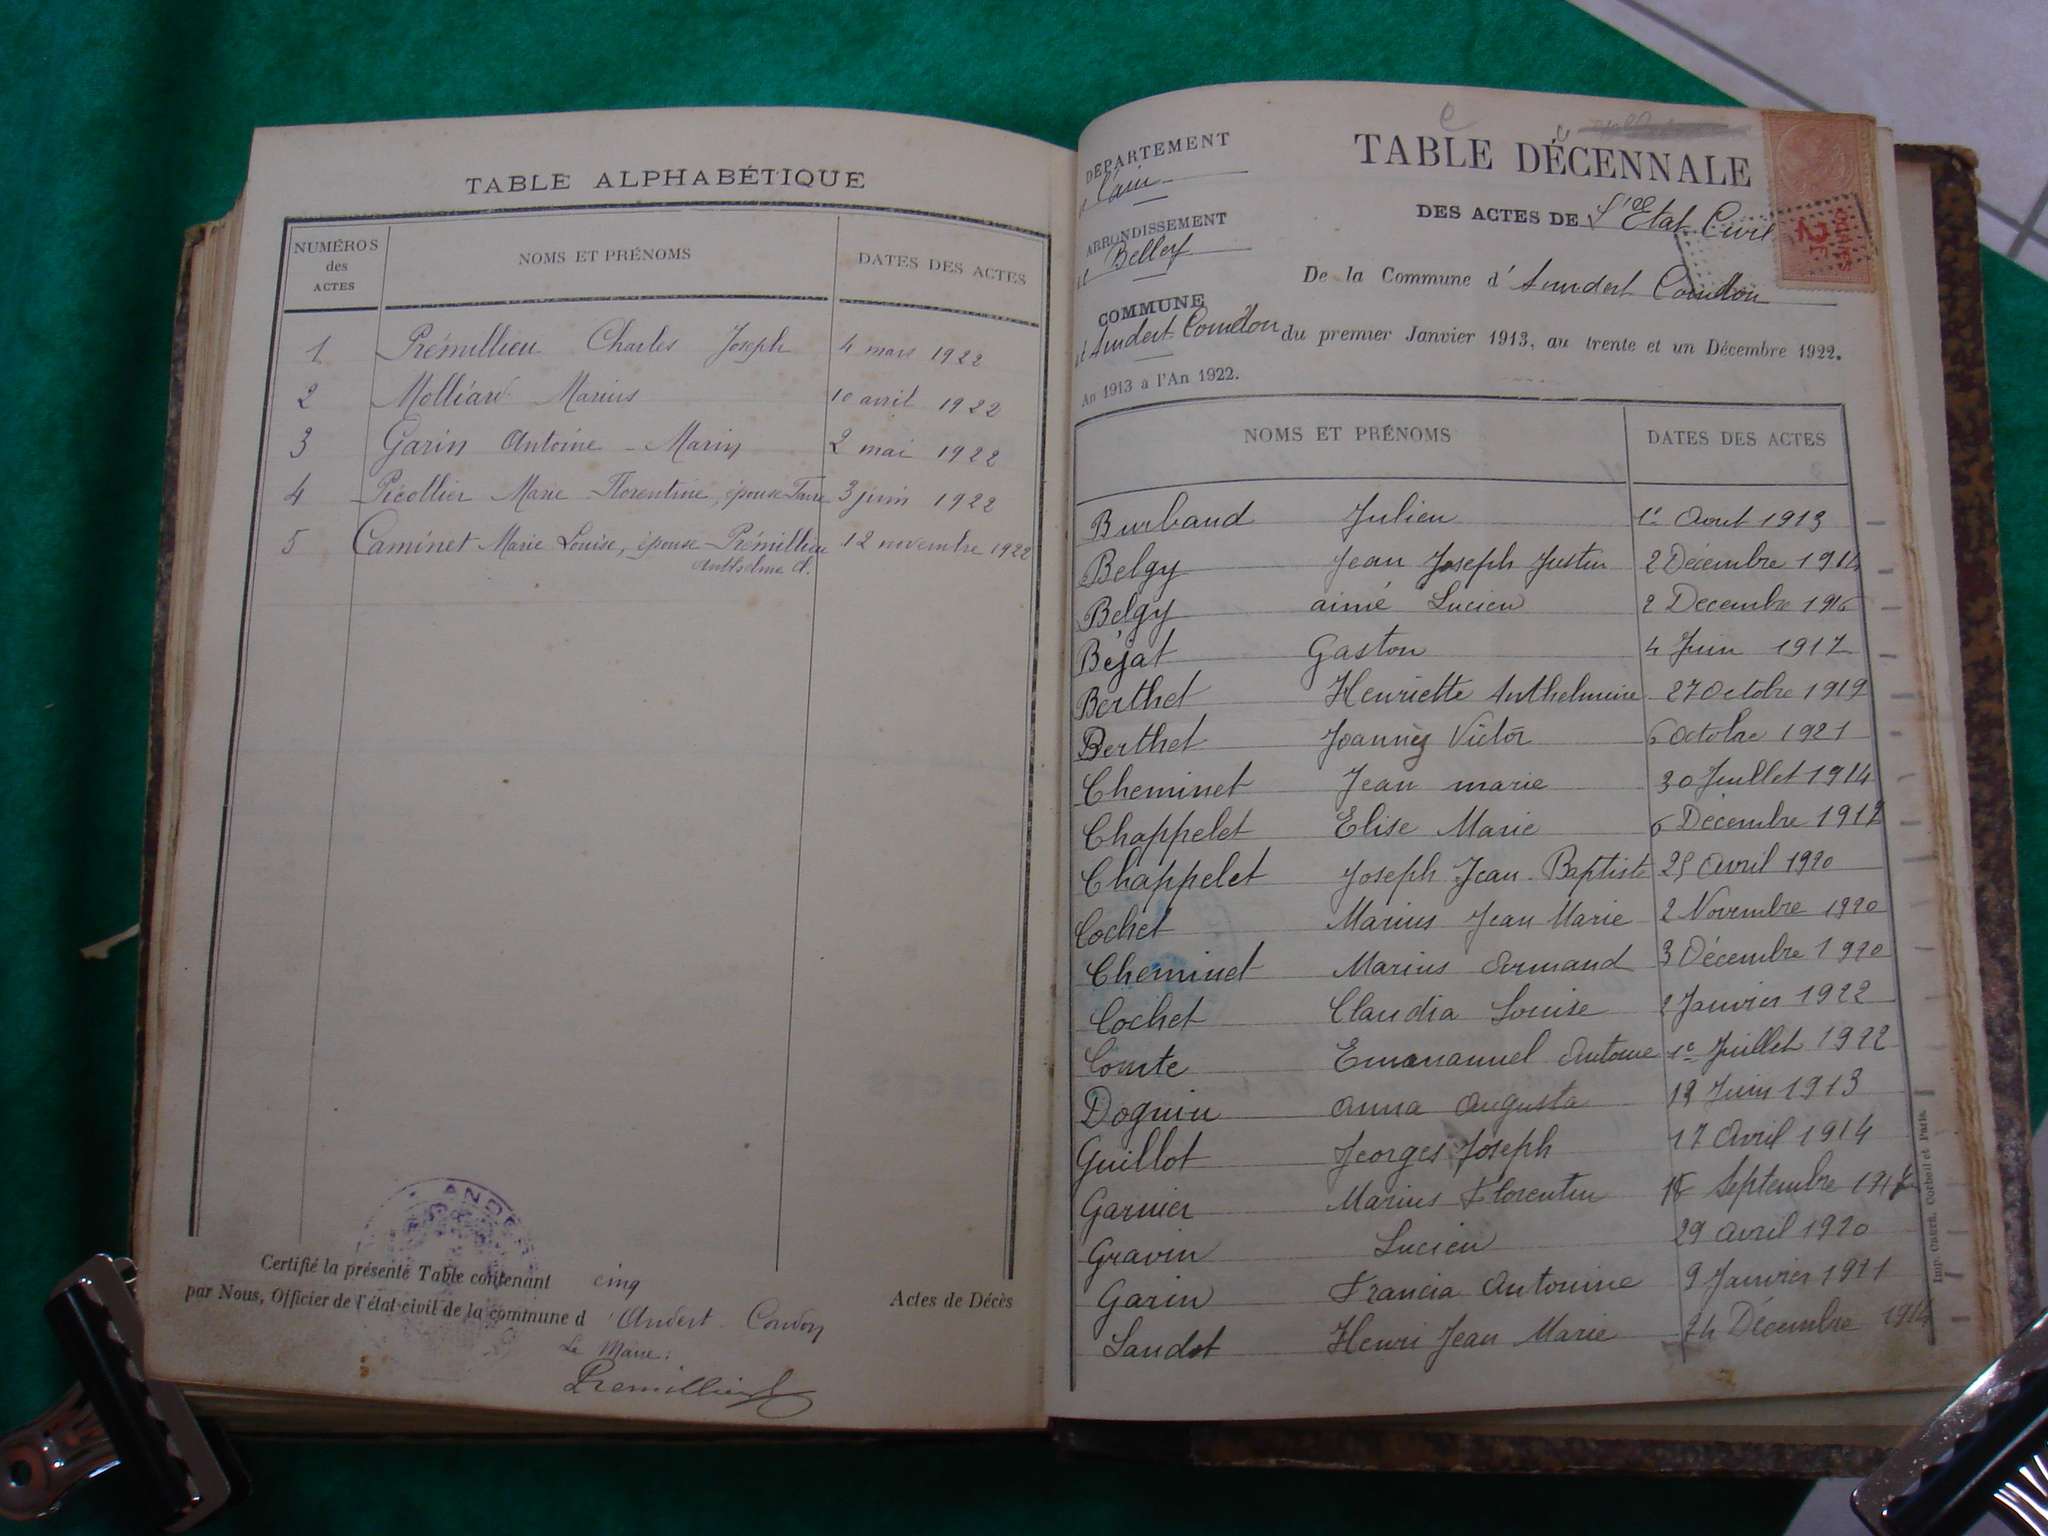 TABLE ALPHABÉTIQUE
NUMÉROS des ACTES NOMS ET PRÉNOMS DATES DES ACTES
1 Prémillieu Charles Joseph 4 mars 1922
2 Molliard Marius 10 avril 1922
3 Garin Antoine - Marin 2 mai 1922
4 Picollier Marie Florentine, épouse 3 juin 1922
5 Caminet Marie Louise, épouse Prémillieu 12 novembre 1922
Anthelme
Certifié la présente Table contenant cinq
Actes de Décès
par Nous, Officier de l'état-civil de la commune d'Andert-Condon
Le Maire:
Premillieu
DÉPARTEMENT
l'Ain
ARRONDISSEMENT
Belley
COMMUNE
d'Andert Condon
An 1913 à l'An 1922.
TABLE DÉCENNALE
DES ACTES DE L'Etat Civil
De la Commune d'Andert Condon
du premier Janvier 1913, au trente et un Décembre 1922.
NOMS ET PRÉNOMS DATES DES ACTES
Burbaud Julien 1r Aout 1913
Belgy Jean Joseph Justin 2 Décembre 1914
Belgy aimé Lucien 2 Decembre 1916
Béjat Gaston 4 Juin 1917
Berthet Henriette Anthelmine 27 Octobre 1919
Berthet Joannès Victor 6 Octobre 1921
Cheminet Jean marie 30 Juillet 1914
Chappelet Elise Marie 6 Décembre
Chappelet Joseph Jean Baptiste 25 Avril 1920
Cochet Marius Jean Marie 2 Novembre 1920
Cheminet Marius Armand 3 Décembre 1920
Cochet Claudia Louise 2 Janvier 1922
Comte Emmanuel Antoine 1e Juillet 1922
Doguin Anna Augusta Juin 1913
Guillot Georges Joseph 17 Avril 1914
Garnier Marius Florentin Septembre
Gravin Lucien 29 avril 1920
Garin Francia Antonine 9 Janvier 1921
Landot Henri Jean Marie 24 Décembre 1914
Imp. Crété, Corbeil et Paris.